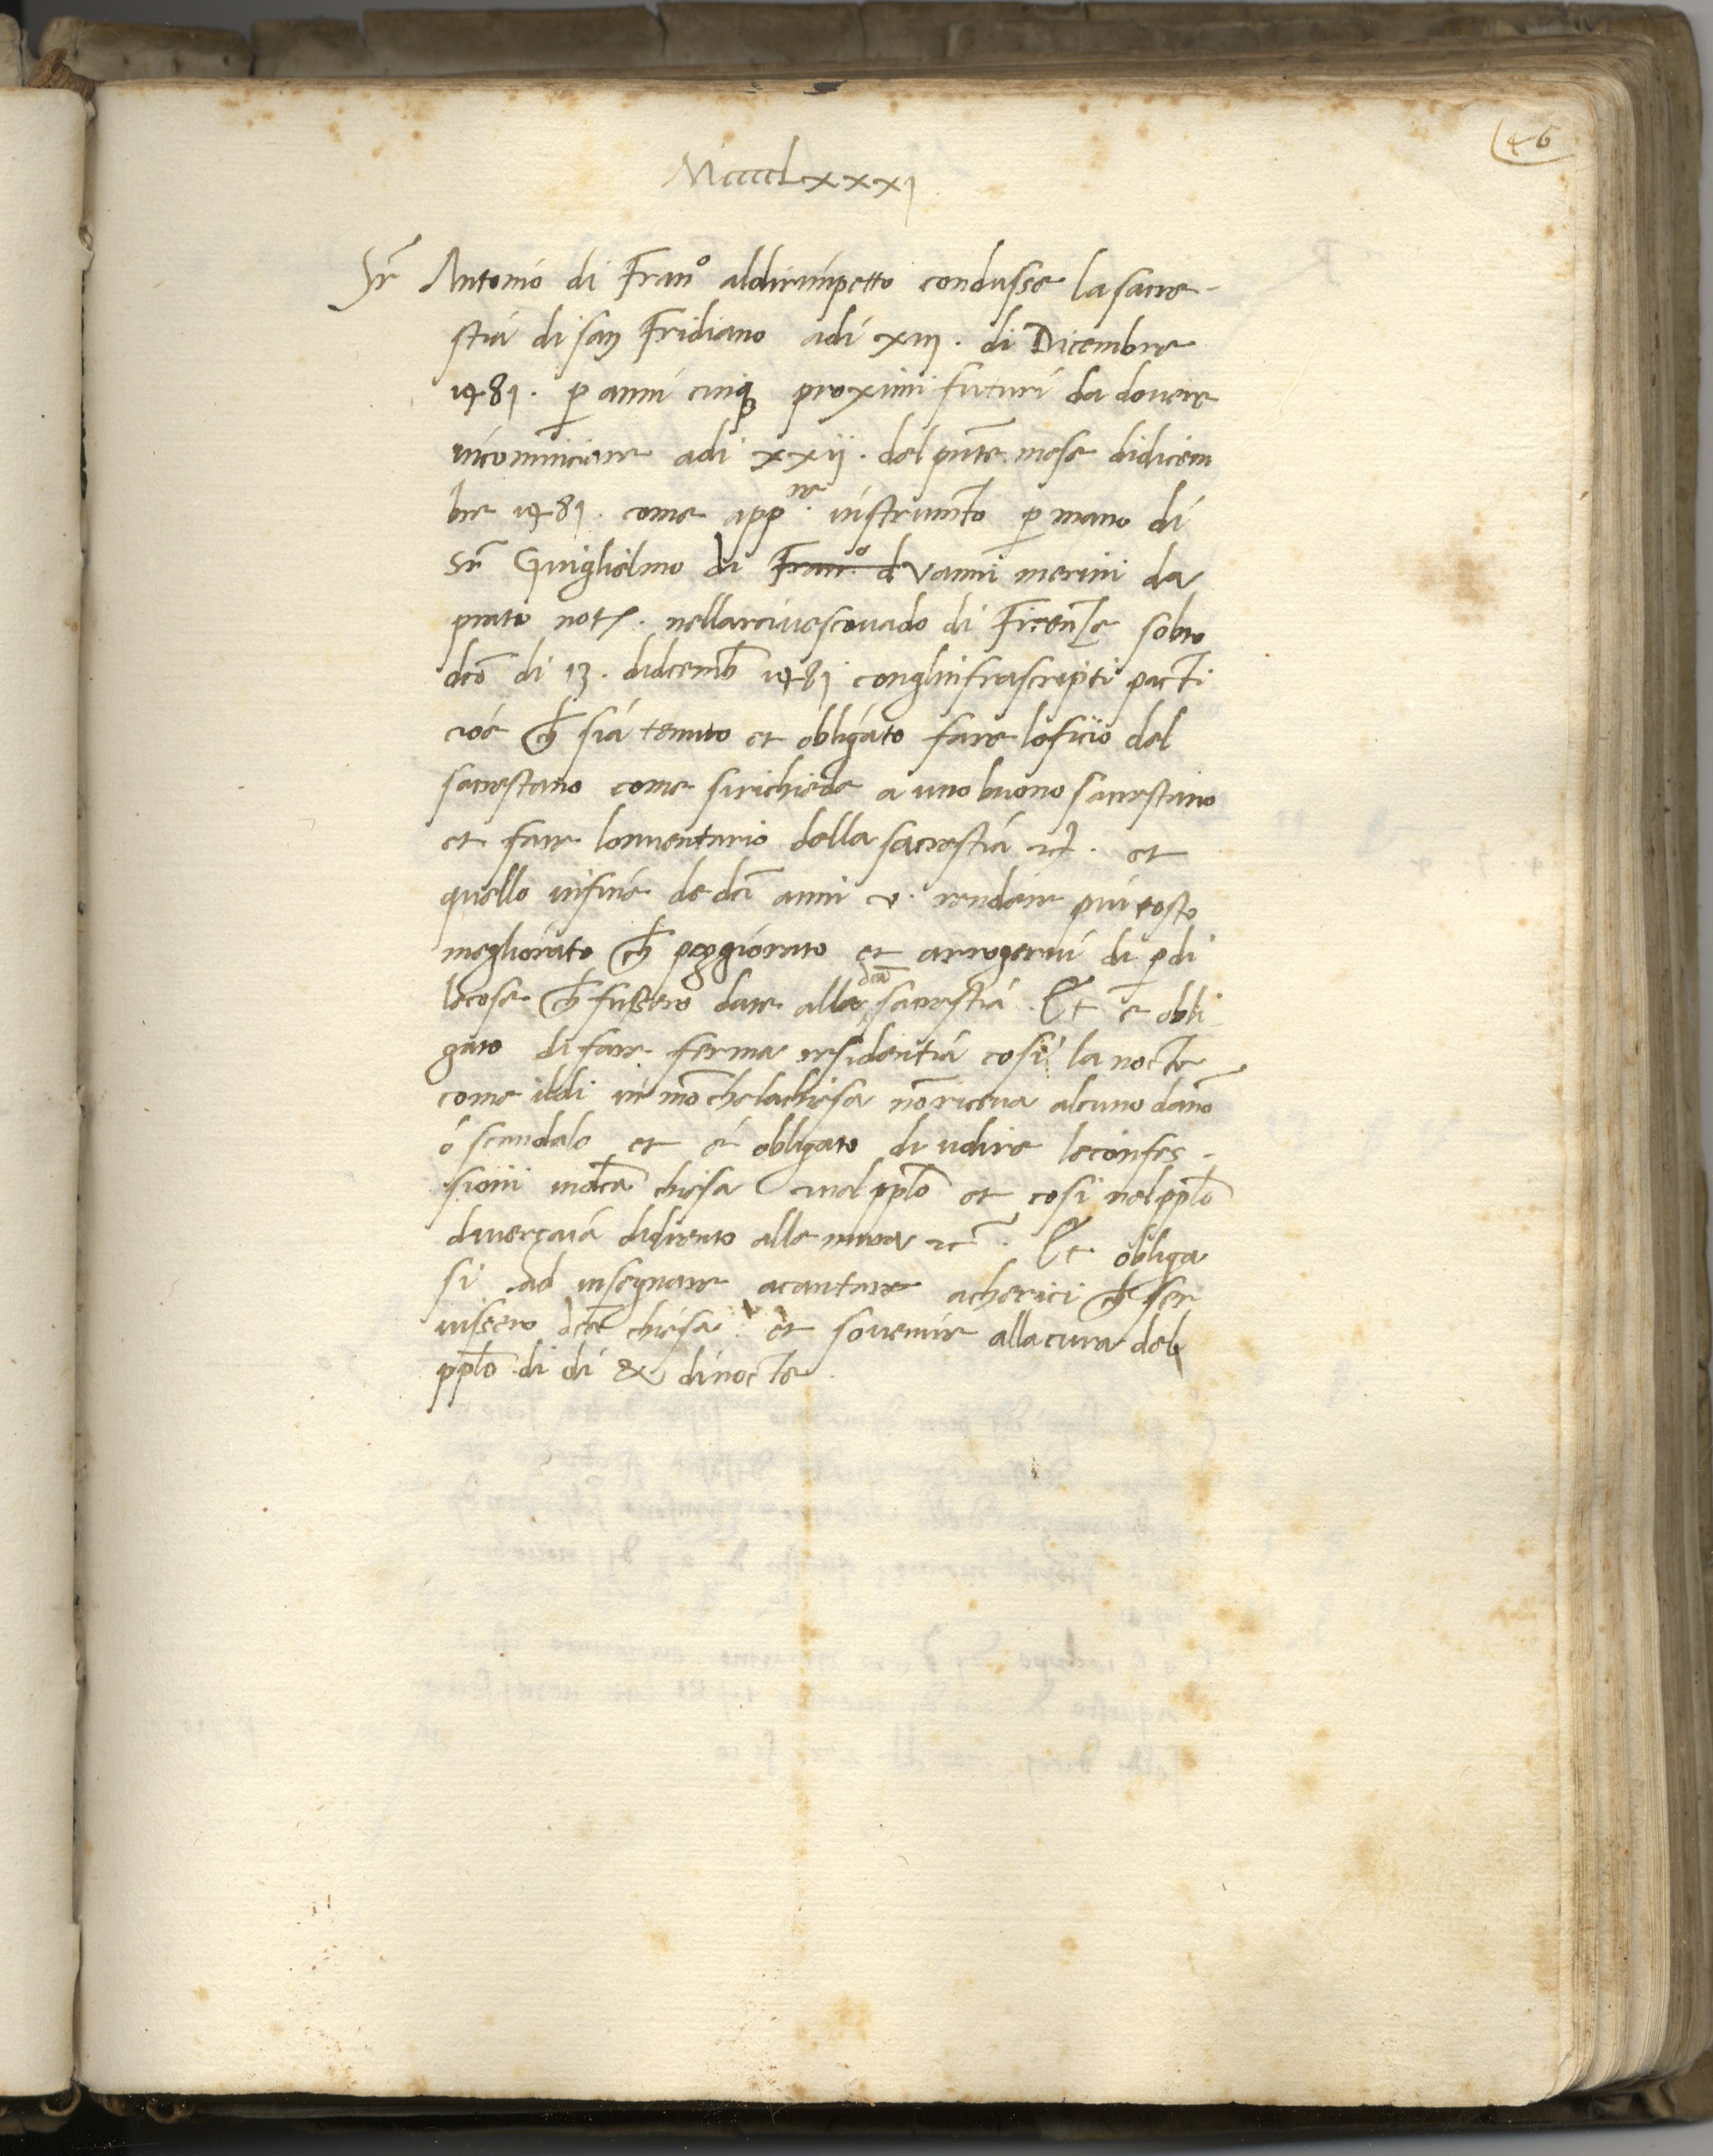 46
MccccLxxxj
Sr̄ Antonio di Franº aldirimpetto condusse la sacre-
stia di san Fridiano adi xiij. di Dicembre
1481. p̲ anni cinq̲ proximi futuri da dovere
incominciare adi xxij. del pn̄te mese didicem
bre 1481. come app.re instrum̄to p̲ mano di
Sr̄ Guiglielmo di Franº d Vanni merini da
prato not. nellarcivescovado di Firenze sobto
dc̄o di 13. didcemb̄ 1481 conglinfrascripti pacti
cioè ch̄ sia tenuto et obligato fare loficio del
sacrestano come sirichiede a uno buono sacrestano
et fare lonventario della sacrestia et
quello infine de dc̄i anni v. rendere piu tosto
megliorato ch̄ peggiorato et arrogervi di p̲ di
lecose ch̄ fussero date alla dc̄a sacrestia. Et è obli
gato di fare ferma residentia cosi la nocte
come ildi in mō che lachiesa nō riceva alcuno dan̄o
ò scandalo et è obligato di udire leconfes-
sioni indc̄a chiesa nel pplō et cosi nel pplō
diverzaia didrento alle mura Et obliga
si ad insegnare acantare acherici ch̄ ser
vissero dc̄a chiesa et sovenire allacura del
pplō di dì & dinocte